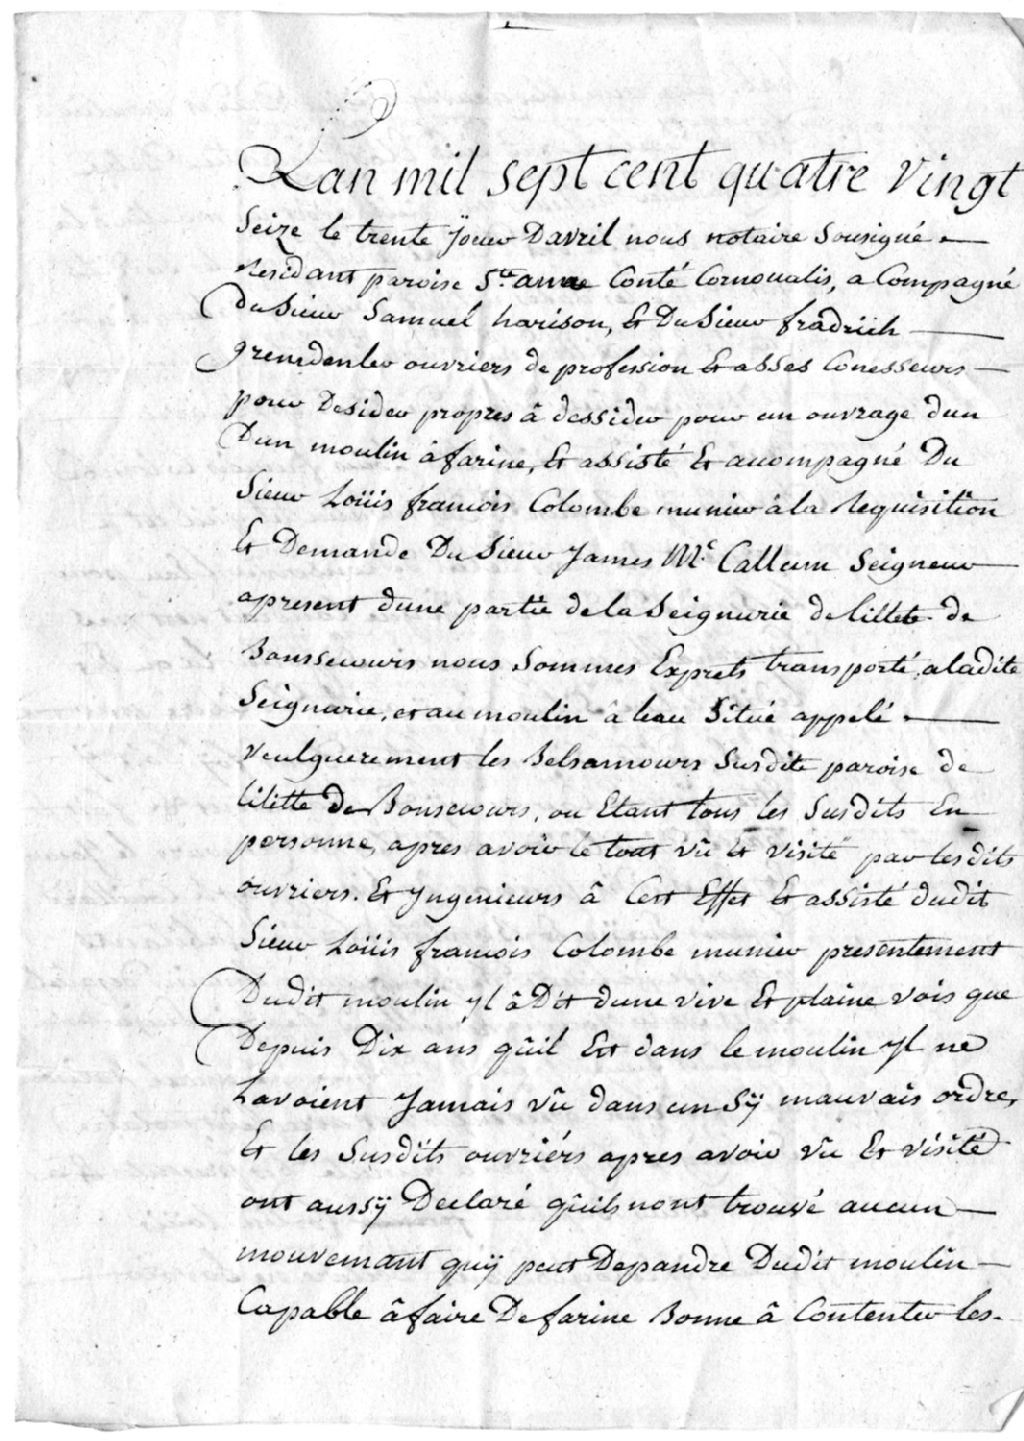 Lan mil sept cent quatre vingt
Seize le trente Jour Davril nous notaire Sousigné
Residant paroise Ste anne Conté Cornoualis, a Compagné
du Sieur Samuel harison, Et Du Sieur fradrich
gremdenler ouvriers de profession Et asses Conesseurs
pour Desider propres â dessider pour un ouvrage dun
Dun moulin â farine, Et assisté Et acompagné Du
Sieur Loüis francois Colombe munier â la Requisition
Et Demande Du Sieur James Mc Callum Seigneur
apresent dune partie de la Seigneurie de lillete de
Bonssecours nous Sommes Exprets transporté, a ladite
Seigneurie, et au moulin â leau Situé appelé
veulguerement les Belsamours Susdite paroise de
lilitte de Bonsecours, ou Etant tous les Susdits En
personne, apres avoir le tout vû Et visité par lesdits
ouvriers. Et Jngenieurs â Cest Effet Et assisté dudit
Sieur Loüis francois Colombe munier presentement
Dudit moulin Jl â Dit dune vive Et plaine vois que
Depuis Dix ans qûil Est dans le moulin Jl ne
Lavoient Jamais vû dans un Sÿ mauvais ordre,
Et les Susdits ouvriérs apres avoir vû Et visité
ont aussÿ Declaré qûils nont trouvé aucun
mouvemant quÿ peut Depandre Dudit moulin
Capable â faire De farine Bonne â Contenter les